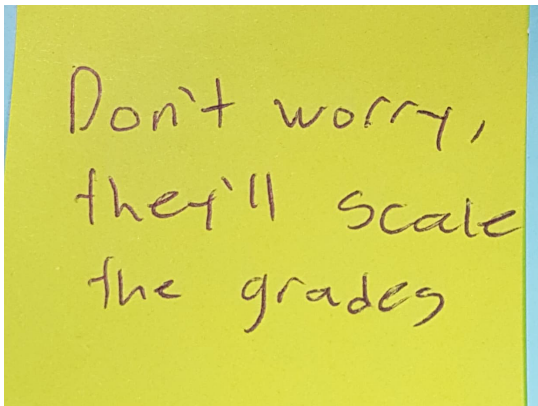 Don't worry,
they'll scale
the grades